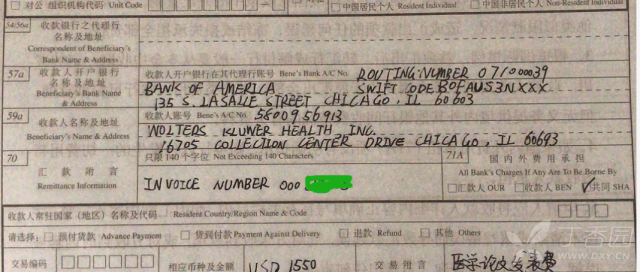 对公 组织机构代码 Unit Code
中国居民个人 Resident Individual
中国非居民个人 Non-Resident Individual
54/56a
收款银行之代理行
名称及地址
Correspondent of Beneficiary's
Bank Name & Address
57a
收款人开户银行
名称及地址
Beneficiary's Bank Name
& Address
收款人开户银行在其代理行账号 Bene's Bank A/C No.
ROUTING NUMBER 07100039
BANK OF AMERICA SWIFT CODE BOFAUS3NXXX
135 S. LASALLE STREET CHICAGO, IL 60603
59a
收款人名称及地址
Beneficiary's Name & Address
收款人账号 Bene's A/C No.
5800956913
WOLTERS KLUWER HEALTH INC.
16705 COLLECTION CENTER DRIVE CHICAGO, IL 60693
70
汇款附言
Remittance Information
只限 140 个字位 Not Exceeding 140 Characters
INVOICE NUMBER 000
71A
国内外费用承担
All Bank's Charges If Any Are To Be Borne By
汇款人 OUR 收款人 BEN ✓共同 SHA
收款人常驻国家（地区）名称及代码 Resident Country/Region Name & Code
请选择： 预付货款 Advance Payment 货到付款 Payment Against Delivery 退款 Refund 其他 Others
交易编码
相应币种及金额
USD 1550
交易附言
医学论文发表费
丁香园
WWW.DXY.CN